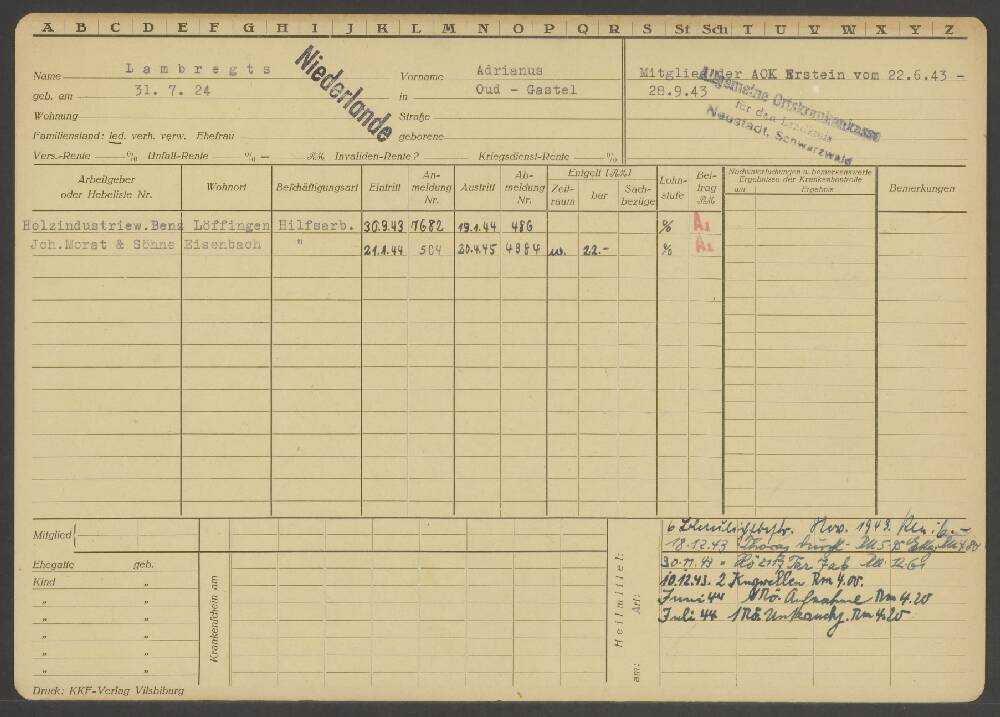 A B C D E F G H I J K L M N O P Q R S St Sch T U V W X Y Z
Name Lambregts Vorname Adrianus
Niederlande
Mitglied der AOK Erstein vom 22.6.43 -
28.9.43
geb. am 31. 7. 24 in Oud - Gastel
Allgemeine Ortskrankenkasse
für den Landkreis
Neustadt, Schwarzwald
Wohnung Straße
Familienstand: led. verh. verw. Ehefrau geborene
Vers.-Rente % Unfall-Rente % = RM Invaliden-Rente? Kriegsdienst-Rente %
Arbeitgeber oder Hebeliste Nr. Wohnort Beschäftigungsart Eintritt An-meldung Nr. Austritt Ab-meldung Nr. Entgelt [RM] Zeit-raum bar Sach-bezüge Lohn-stufe Bei-trag RM Nachuntersuchungen u. bemerkenswerte Ergebnisse der Krankenkontrolle am Ergebnis Bemerkungen
Holzindustriew. Benz Löffingen Hilfsarb. 30.9.43 7682 19.1.44 486 % A1
Joh.Morat & Söhne Eisenbach " 21.1.44 504 20.4.45 4984 w. 22.- % A1
Mitglied
Ehegatte geb.
Kind "
" "
" "
" "
" "
Krankenschein am
Heilmittel:
am: Art:
6 Nov. 1943.
18.12.43 Thorax
30.11.43
10.12.43. 2 Kurzwellen Rm 4.00.
Juni 44 1 Rö. Aufnahme Rm 4.20
Juli 44 1 Rö. Rm 4.20
Druck: KKF-Verlag Vilsbiburg